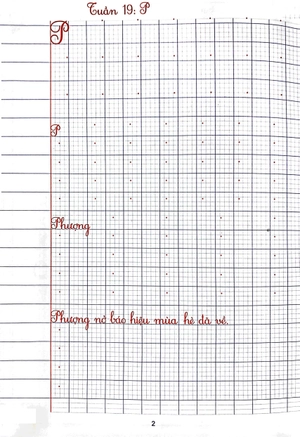 Tuần 19: P
P
P
Phượng
Phượng nở báo hiệu mùa hè đã về.
2